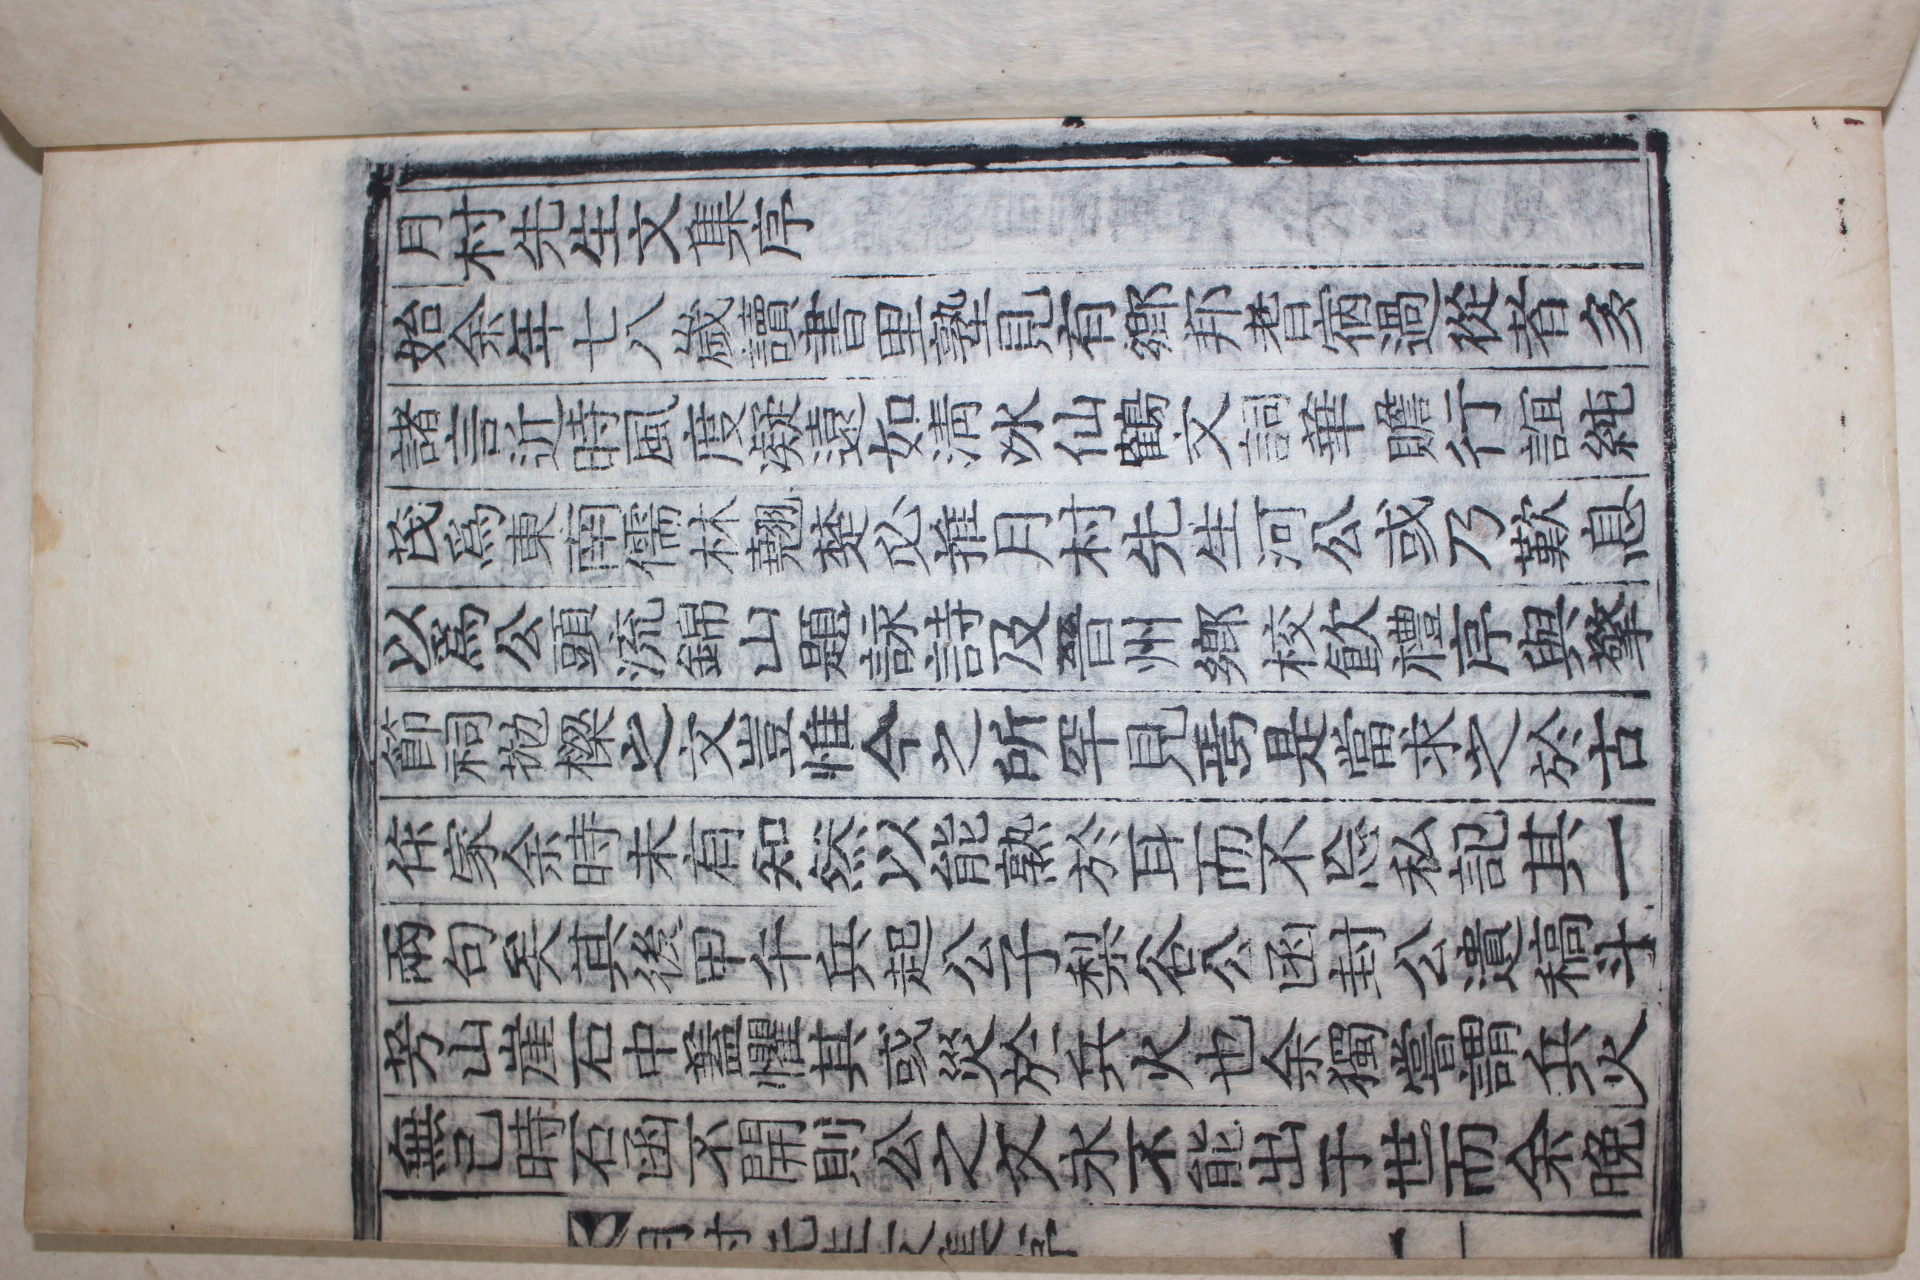 月村先生文集序
始余年七八歲讀書里塾見有鄕邦耆宿過從者亥
諸言近時風度凝遠如淸水仙鶴文詞華贍行誼純
茂爲東南儒林翹楚必推月村先生河公或乃歎息
以爲公頭流錦山題詠詩及晉州鄕校飮禮序與擎
節祠抛樑之文豈惟今之所罕見焉是當求之於古
作家余時未有知然以能熟於耳而不忘私記其一
兩句矣其後甲午兵起公子梨谷公函封公遺稿斗
芳山崖石中蓋懼其或災於兵火也余獨嘗謂兵火
無已時石函不開則公之文永不能出于世而余晩
月村先生文集序 一